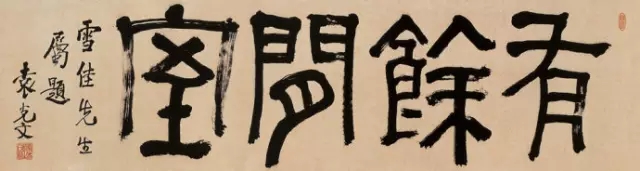 有餘閒室
雪佳先生
屬題
袁克文